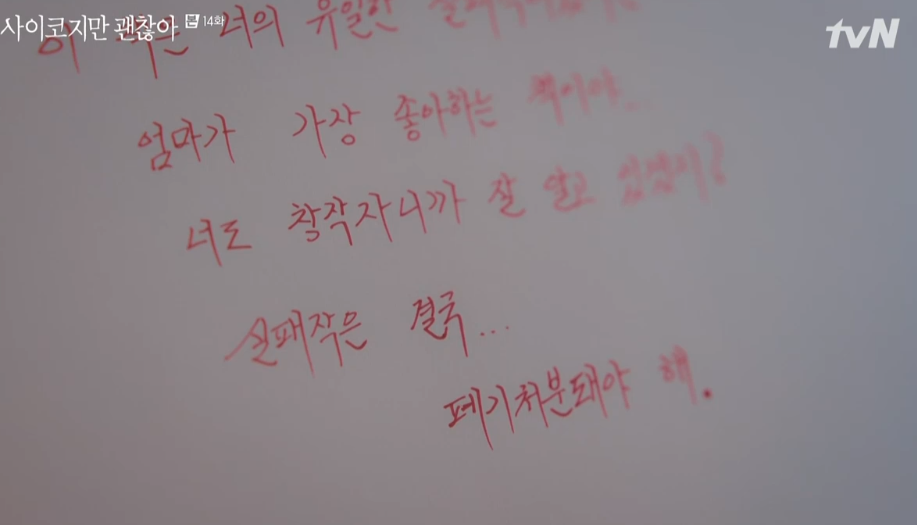 사이코지만 괜찮아 본 14화
tvN
너의 유일한
엄마가 가장 좋아하는 책이야...
너도 창작자니까 잘 알고 있겠지?
실패작은 결국...
폐기처분돼야 해.